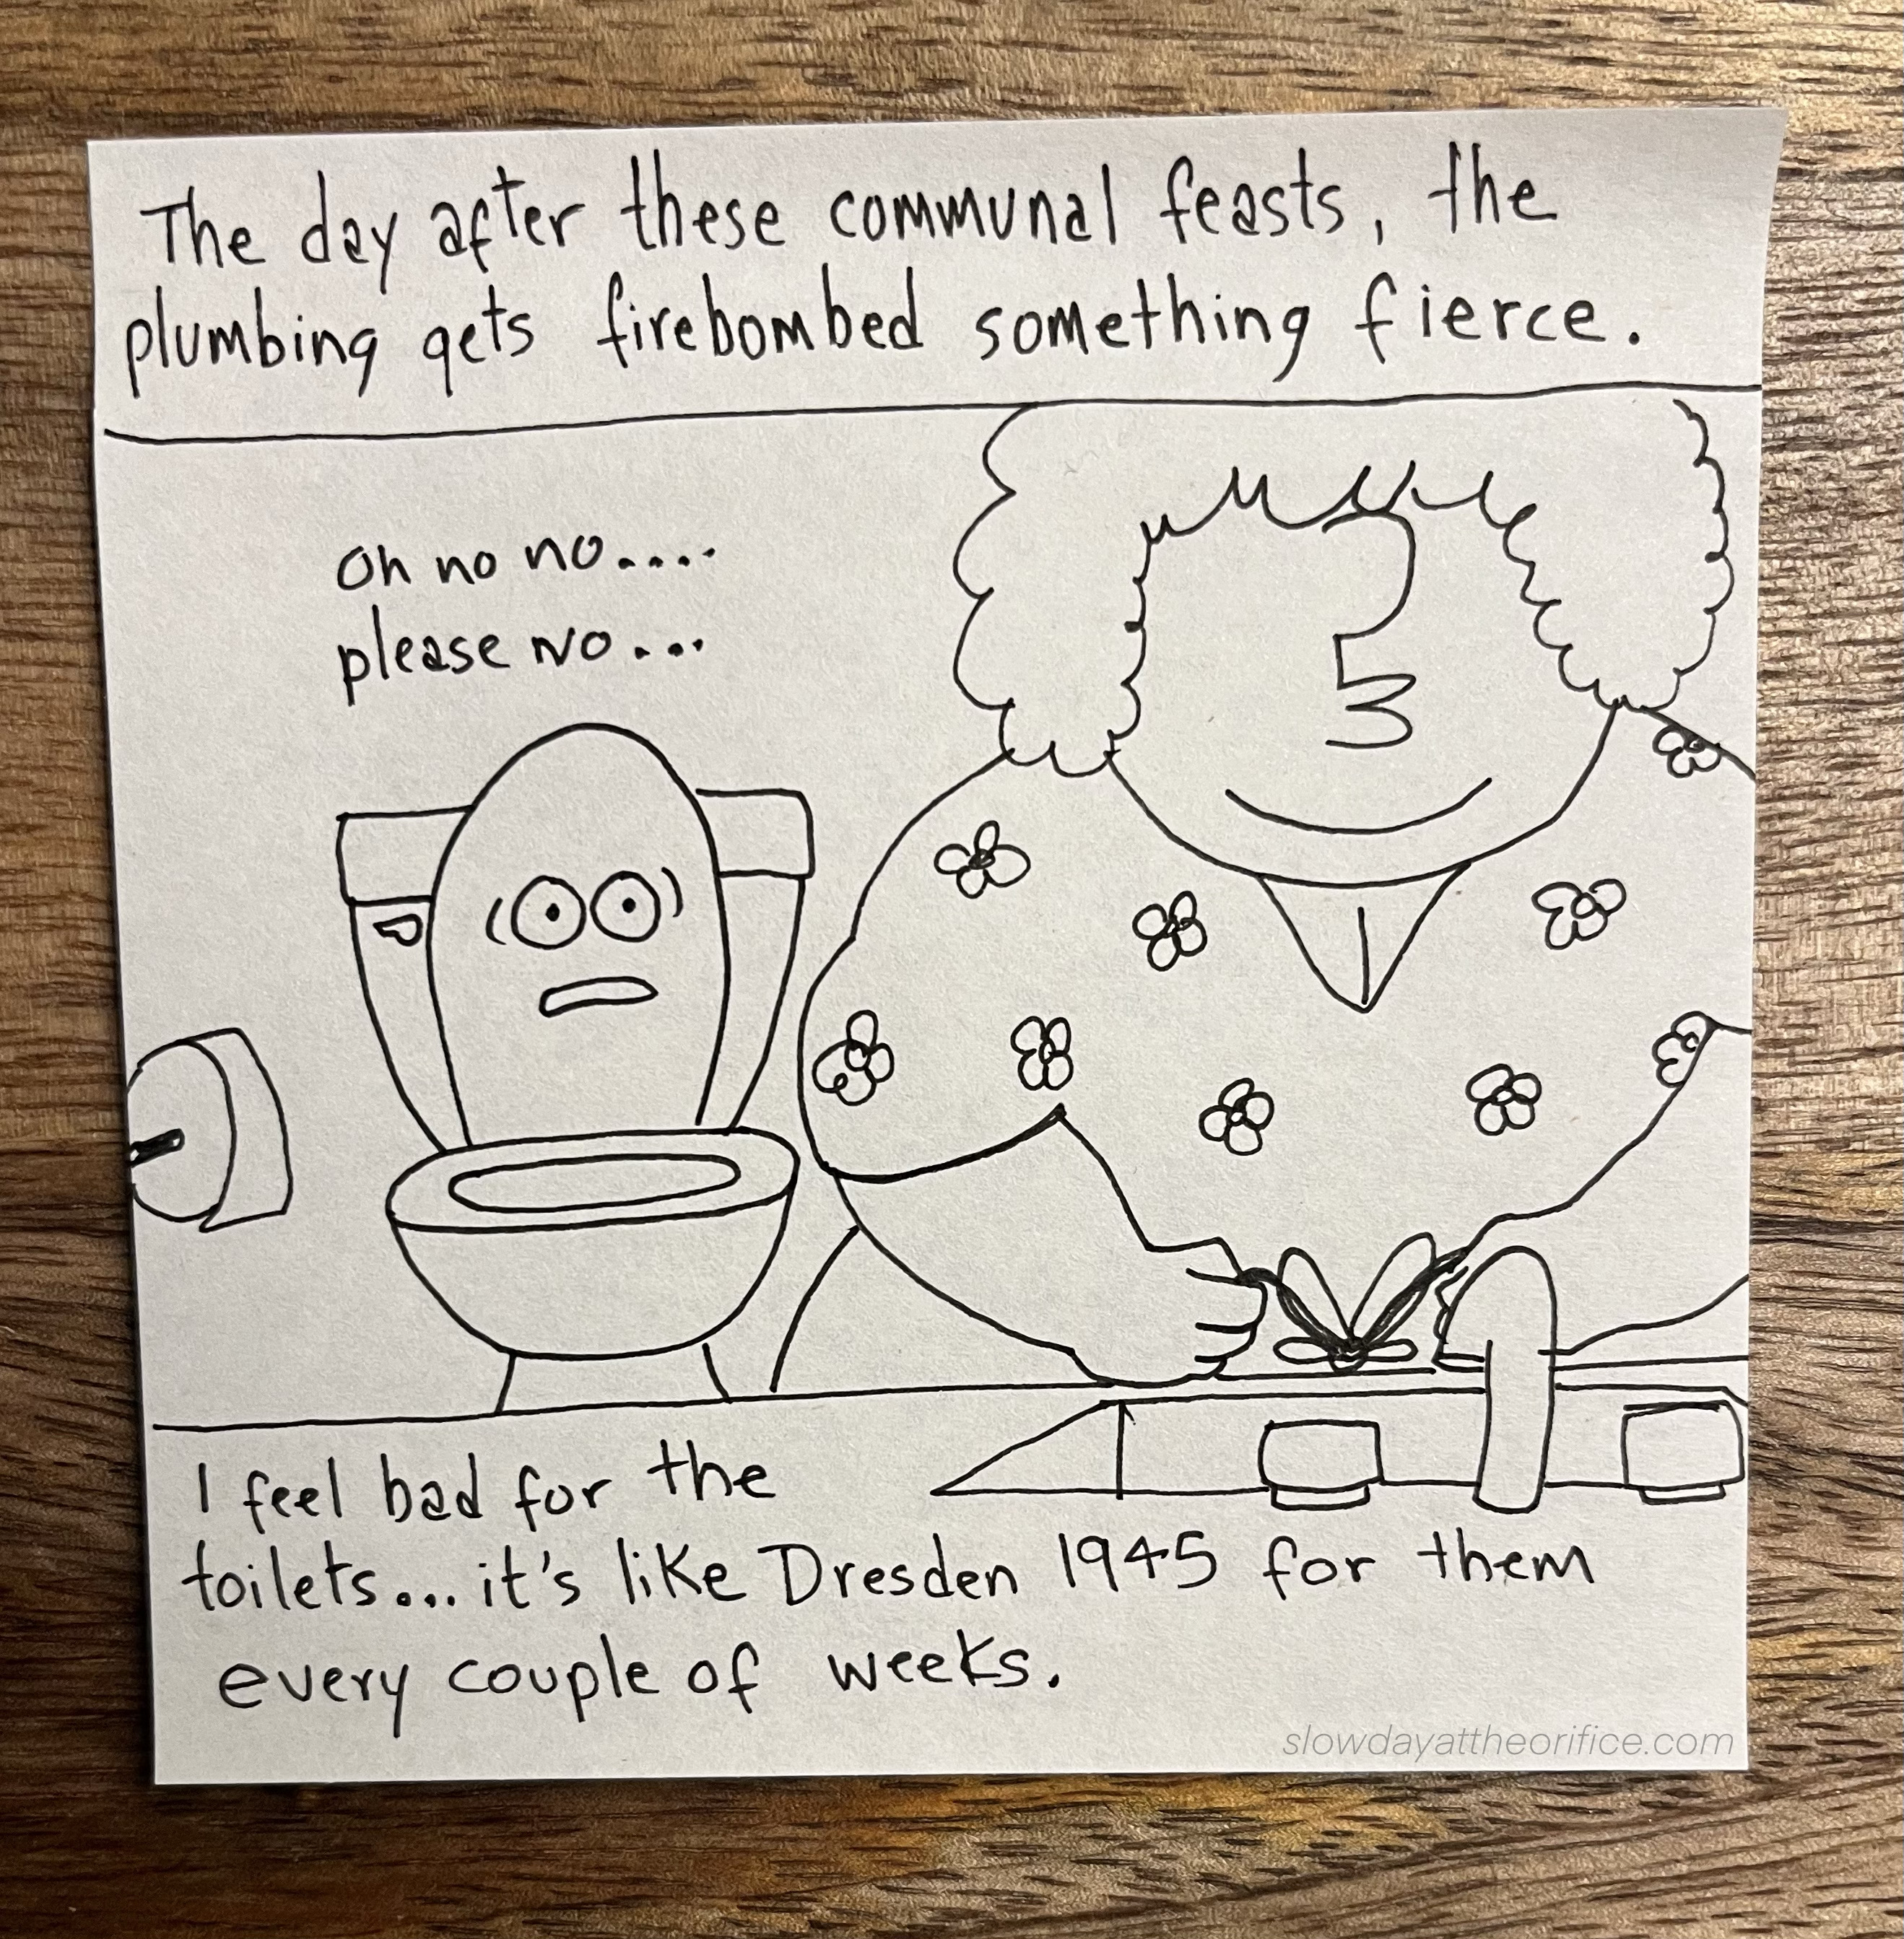 The day after these communal feasts, the
plumbing gets firebombed something fierce.
Oh no no....
please no...
I feel bad for the
toilets... it's like Dresden 1945 for them
every couple of weeks.
slowdayattheorifice.com